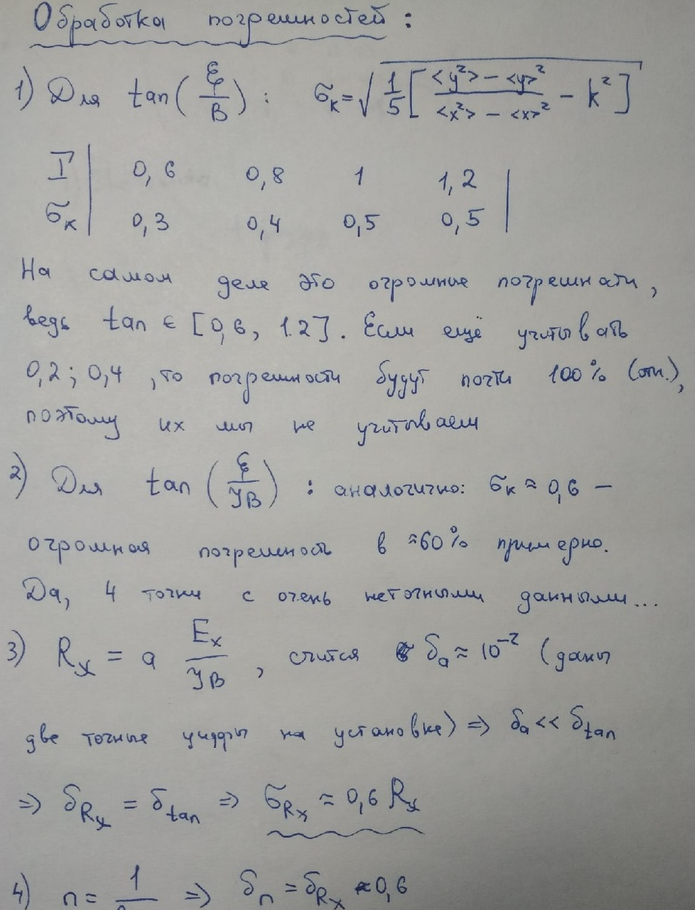 Обработка погрешностей:
1) Для tan(ξ/B): σ_k = √(1/5[(<y²> - <y>²)/(<x²> - <x>²) - k²])
I | 0,6 0,8 1 1,2 |
σ_k | 0,3 0,4 0,5 0,5 |
На самом деле это огромные погрешности,
ведь tan ∈ [0,6, 1.2]. Если ещё учитывать
0,2; 0,4, то погрешности будут почти 100% (отн.),
поэтому их мы не учитываем
2) Для tan(ξ/JB): аналогично: σ_k ≈ 0,6 –
огромная погрешность в ≈60% примерно.
Да, 4 точки с очень неточными данными...
3) R_x = a E_x/JB, считтся δ_a ≈ 10⁻² (даны
две точные цифры на установке) ⇒ δ_a << δ_tan
⇒ δ_Rx = δ_tan ⇒ σ_Rx ≈ 0,6 R_x
4) n = 1/ ⇒ δ_n = δ_Rx ≈ 0,6